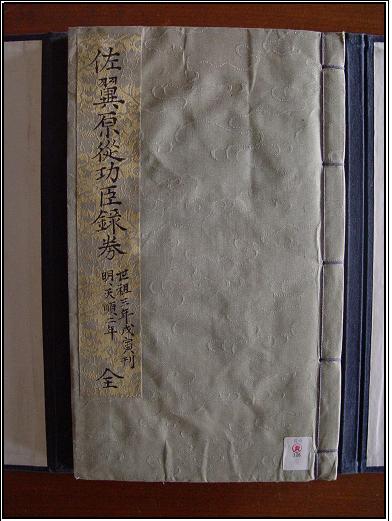 佐翼原從功臣錄券
世祖三年戊寅刊
明、天順二年
全